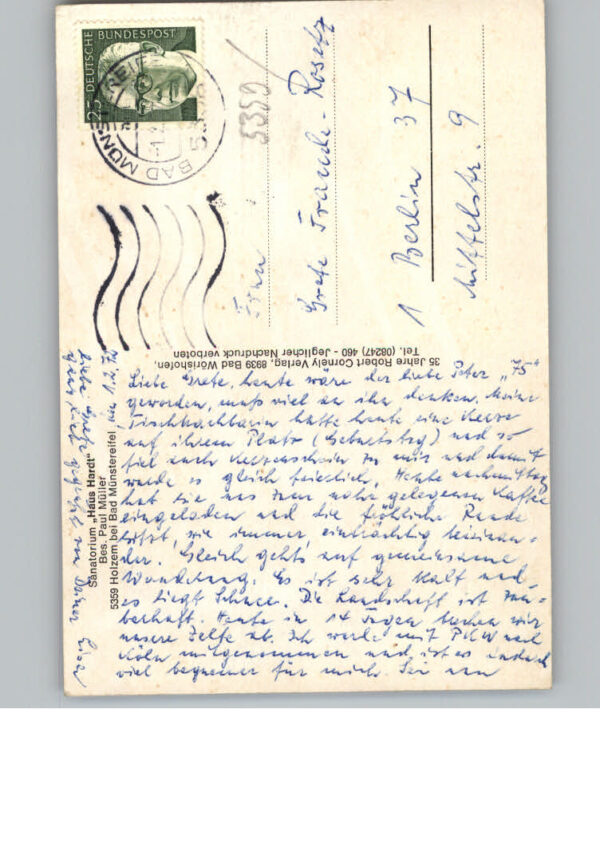 25 DEUTSCHE BUNDESPOST
BAD MÜNSTEREIFEL
5359
Frau
Grete Frande-Rosetz
1 Berlin 37
Mittelstr. 9
35 Jahre Robert Cornely Verlag, 8939 Bad Wörishofen,
Tel. (08247) 460 - Jeglicher Nachdruck verboten
Sanatorium „Haus Hardt"
Bes. Paul Müller
5359 Holzem bei Bad Münstereifel
Liebe Grete, heute wäre der liebe Peter „75"
geworden, muß viel an ihn denken. Meine
Tischnachbarin hatte heute eine Kerze
auf ihrem Platz (Geburtstag) und so
fiel auch Kerzenschein zu mir und damit
wurde es gleich feierlich. Heute nachmittag
hat sie uns zum nahe gelegenen Kaffee
eingeladen und die fröhliche Runde
sitzt, wie immer, einträchtig beieinan-
der. Gleich gehts auf gemeinsame
Wanderung. Es ist sehr kalt und
es liegt Schnee. Die Landschaft ist zau-
berhaft. Heute in 14 Tagen brechen wir
unsere Zelte ab. Ich werde mit PKW nach
Köln mitgenommen und ist es dadurch
viel bequemer für mich. Sei nun
liebe Grete
ganz lieb gegrüßt von Deiner